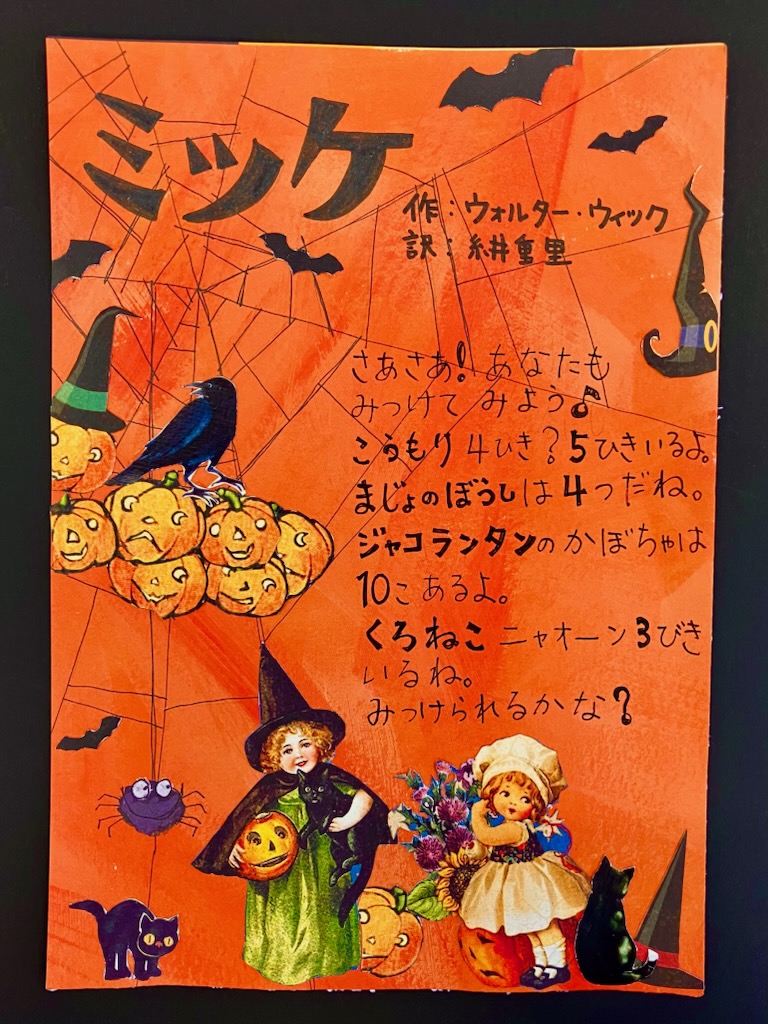 ミッケ
作:ウォルター・ウィック
訳:糸井重里
さあさあ!あなたも
みつけて みよう♪
こうもり 4ひき?5ひきいるよ。
まじょのぼうしは4つだね。
ジャコランタンのかぼちゃは
10こあるよ。
くろねこ ニャオーン3びき
いるね。
みつけられるかな?